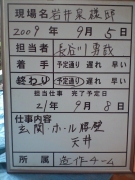 現場名 岩井泉様邸
2009年9月5日
担当者 長谷川勇哉
着手 予定通り 遅れ 早い
終わり 予定通り 遅れ 早い
担当仕事 完了予定日
21年9月8日
仕事内容
玄関・ホール腰壁
天井
所属 造作チーム